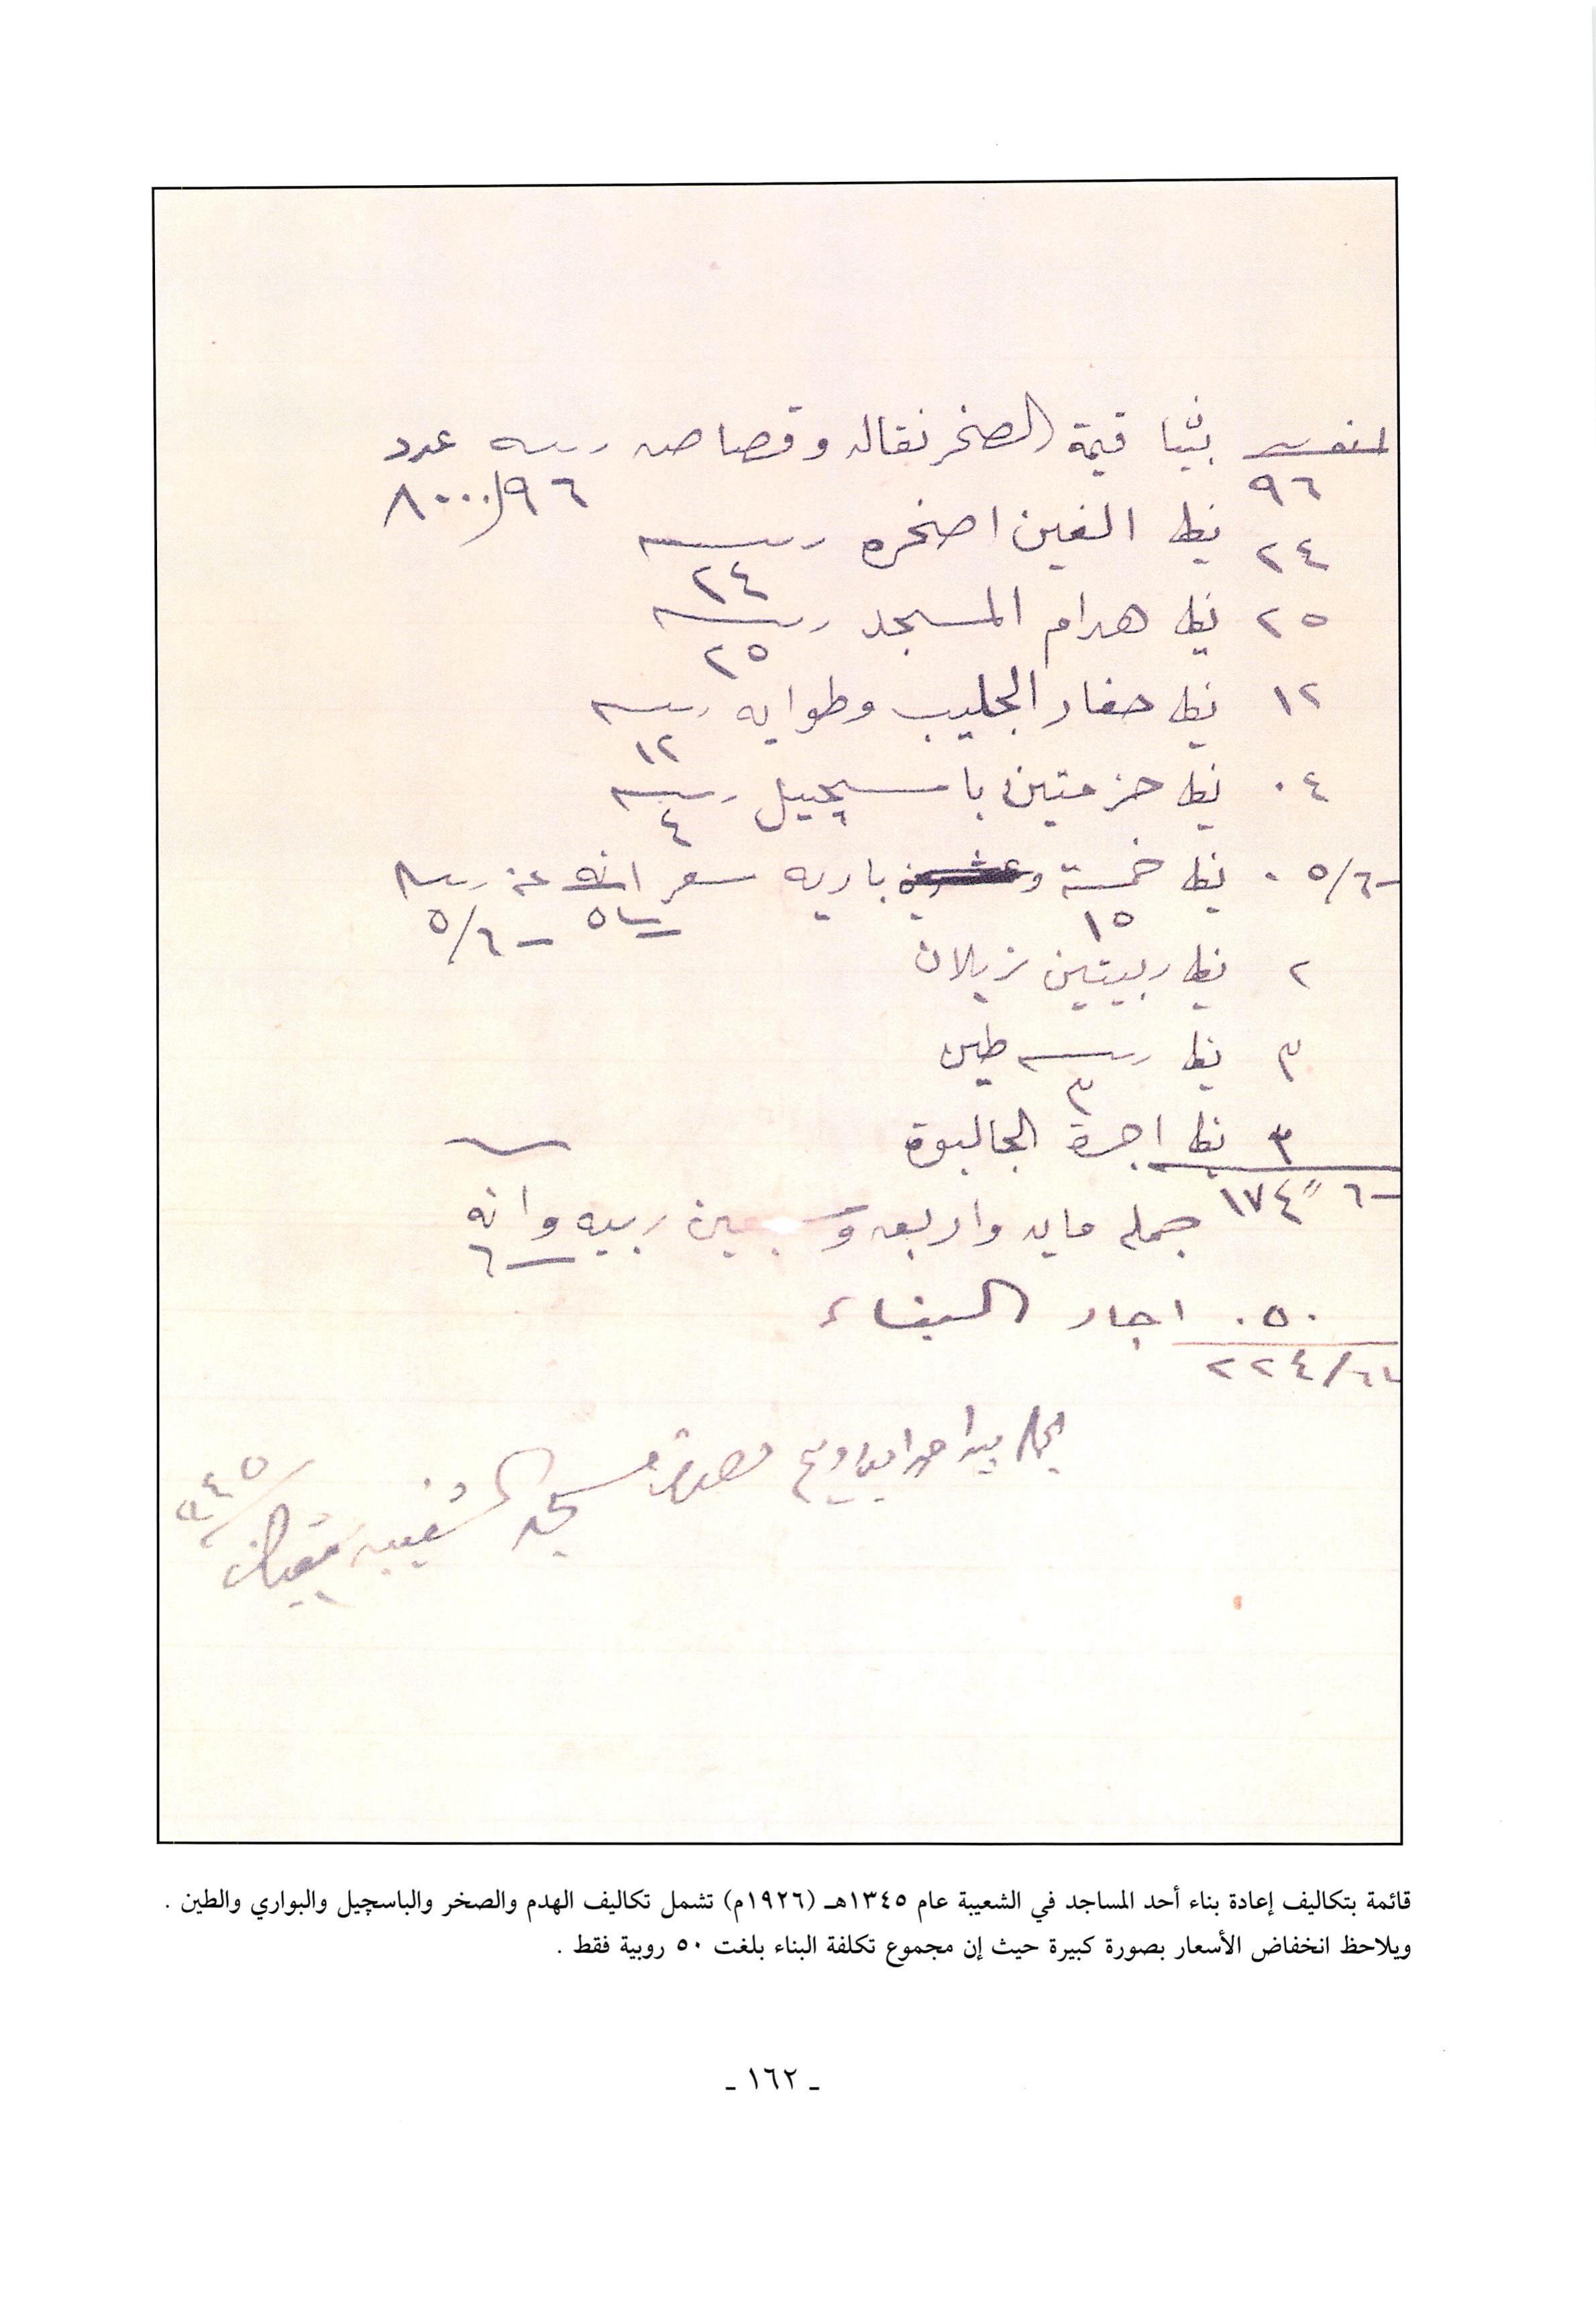 بثيا قيمة الصخر نقاله وقصاصه ربيه عدد
٩٦ ٩٦/ ٨٠٠٠
٢٤ ايظا الفين اصخره ربيه
٢٤
٢٥ ايظا هدام المسجد ربيه
٢٥
١٢ ايظا حفار الجليب وطوايه ربيه
١٢
٠٤ ايظا حزمتين باسچيل ربيه
٤
٠٥/٦ ايظا خمسة و باريه سعر انه عن ربيه
١٥ ٥ ٥/٦
٢ ايظا ربيتين زبلان
٣ ايظا ربيه طين
٣
٣ ايظا اجرة الجالبوة
١٧٤ ٦
جمله مايه واربعه وسبعين ربيه وانه
٦
٠٥٠ اجار البناء
٢٢٤/٦
مسجد الشعيبه
قائمة بتكاليف إعادة بناء أحد المساجد في الشعيبة عام ١٣٤٥هـ (١٩٢٦م) تشمل تكاليف الهدم والصخر والباسچيل والبواري والطين .
ويلاحظ انخفاض الأسعار بصورة كبيرة حيث إن مجموع تكلفة البناء بلغت ٥٠ روبية فقط .
ـ ١٦٢ ـ